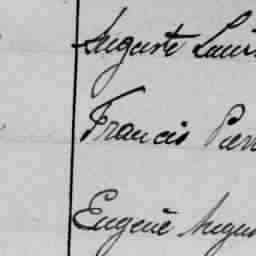 Auguste Louis
Francis Pierr
Eugène Augus